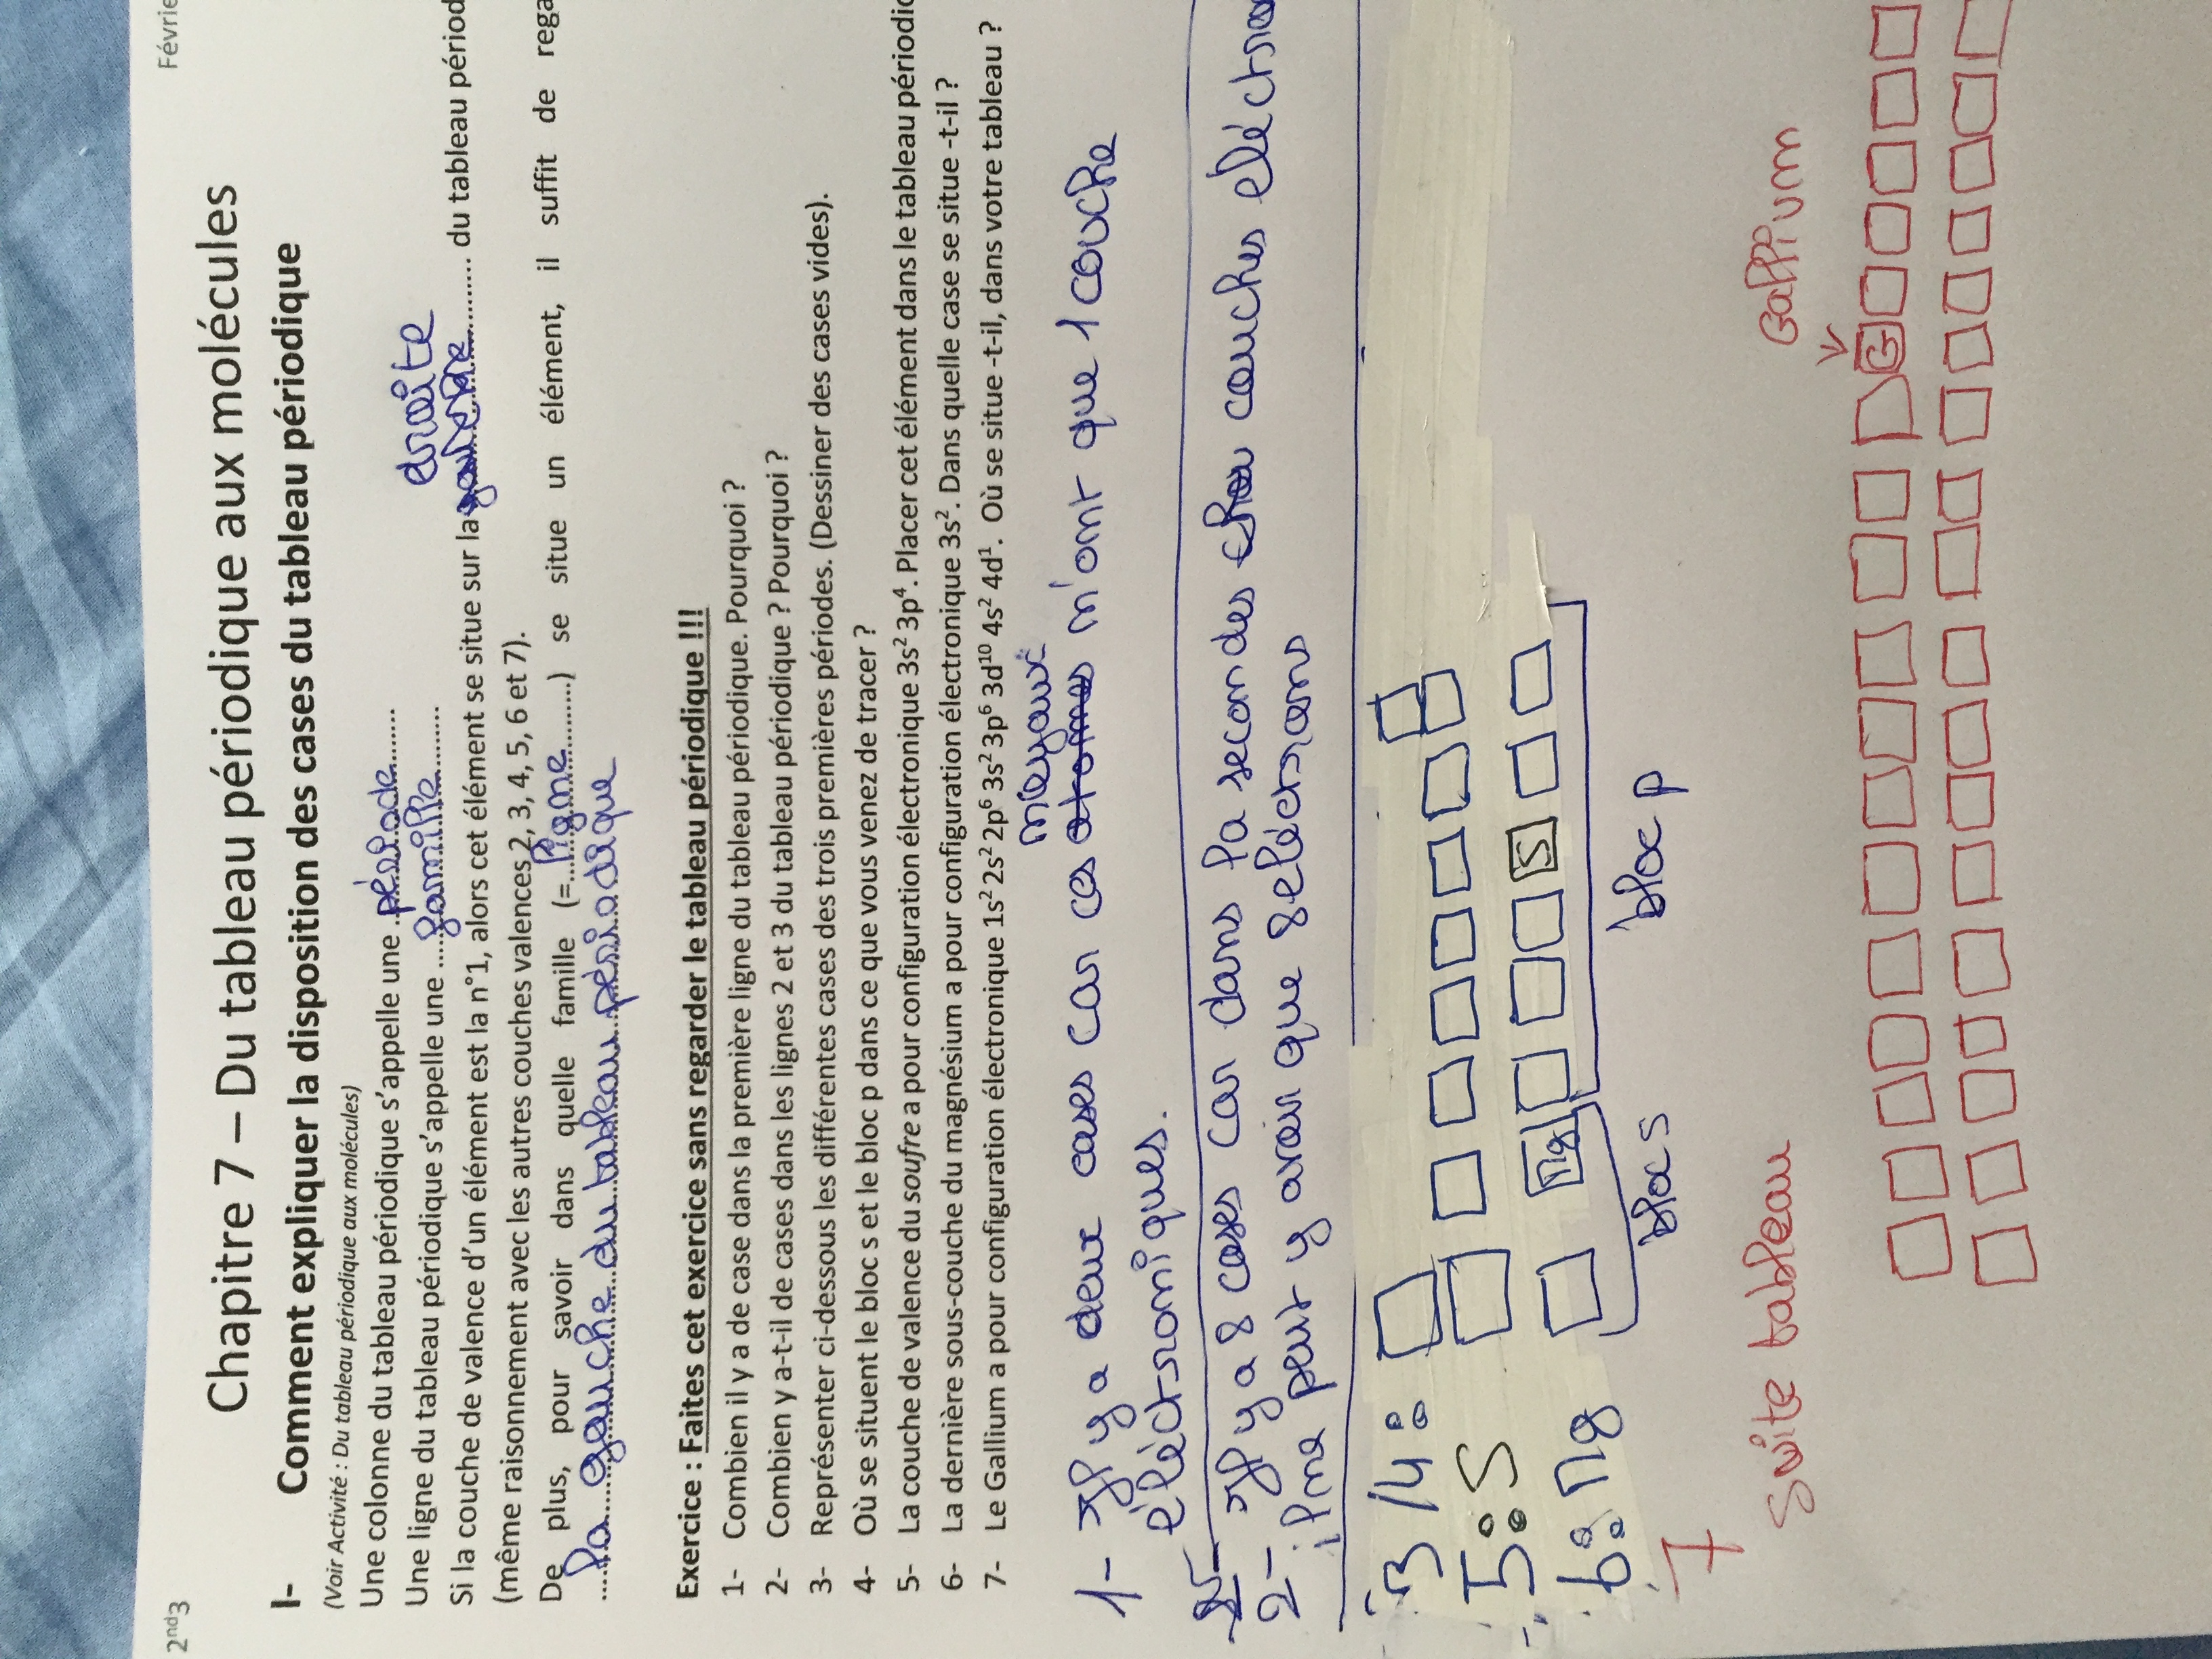 2nd3
Févrie
Chapitre 7 – Du tableau périodique aux molécules
I- Comment expliquer la disposition des cases du tableau périodique
(Voir Activité : Du tableau périodique aux molécules)
Une colonne du tableau périodique s'appelle une ..période..........
Une ligne du tableau périodique s'appelle une .....famille..........
droite
Si la couche de valence d'un élément est la n°1, alors cet élément se situe sur la gauche ............ du tableau périod
(même raisonnement avec les autres couches valences 2, 3, 4, 5, 6 et 7).
De plus, pour savoir dans quelle famille (=..ligne..........) se situe un élément, il suffit de rega
....la gauche du tableau périodique
Exercice : Faites cet exercice sans regarder le tableau périodique !!!
1- Combien il y a de case dans la première ligne du tableau périodique. Pourquoi ?
2- Combien y a-t-il de cases dans les lignes 2 et 3 du tableau périodique ? Pourquoi ?
3- Représenter ci-dessous les différentes cases des trois premières périodes. (Dessiner des cases vides).
4- Où se situent le bloc s et le bloc p dans ce que vous venez de tracer ?
5- La couche de valence du soufre a pour configuration électronique 3s² 3p⁴. Placer cet élément dans le tableau périodic
6- La dernière sous-couche du magnésium a pour configuration électronique 3s². Dans quelle case se situe -t-il ?
7- Le Gallium a pour configuration électronique 1s² 2s² 2p⁶ 3s² 3p⁶ 3d¹⁰ 4s² 4d¹. Où se situe -t-il, dans votre tableau ?
noyaux
1- Il y a deux cases car ces atomes n'ont que 1 couche
éléctroniques.
2-
2- Il y a 8 cases car dans la secondes couches eléctro
il ne peut y avoir que 8 eléctrons
3/4:
5: S
6: Mg
Mg
S
bloc s
bloc p
7
Suite tableau
Gallium
G